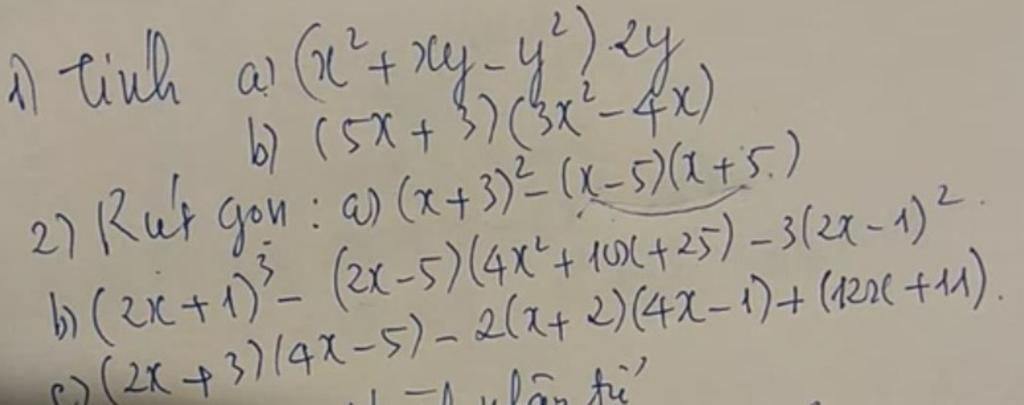 1) Tính a) (x² + xy - y²) 2y
b) (5x + 3)(3x² - 4x)
2) Rút gọn : a) (x+3)² - (x-5)(x+5)
b) (2x+1)³ - (2x-5)(4x² + 10x + 25) - 3(2x-1)².
c) (2x+3)(4x-5) - 2(x+2)(4x-1) + (12x+11).
tử